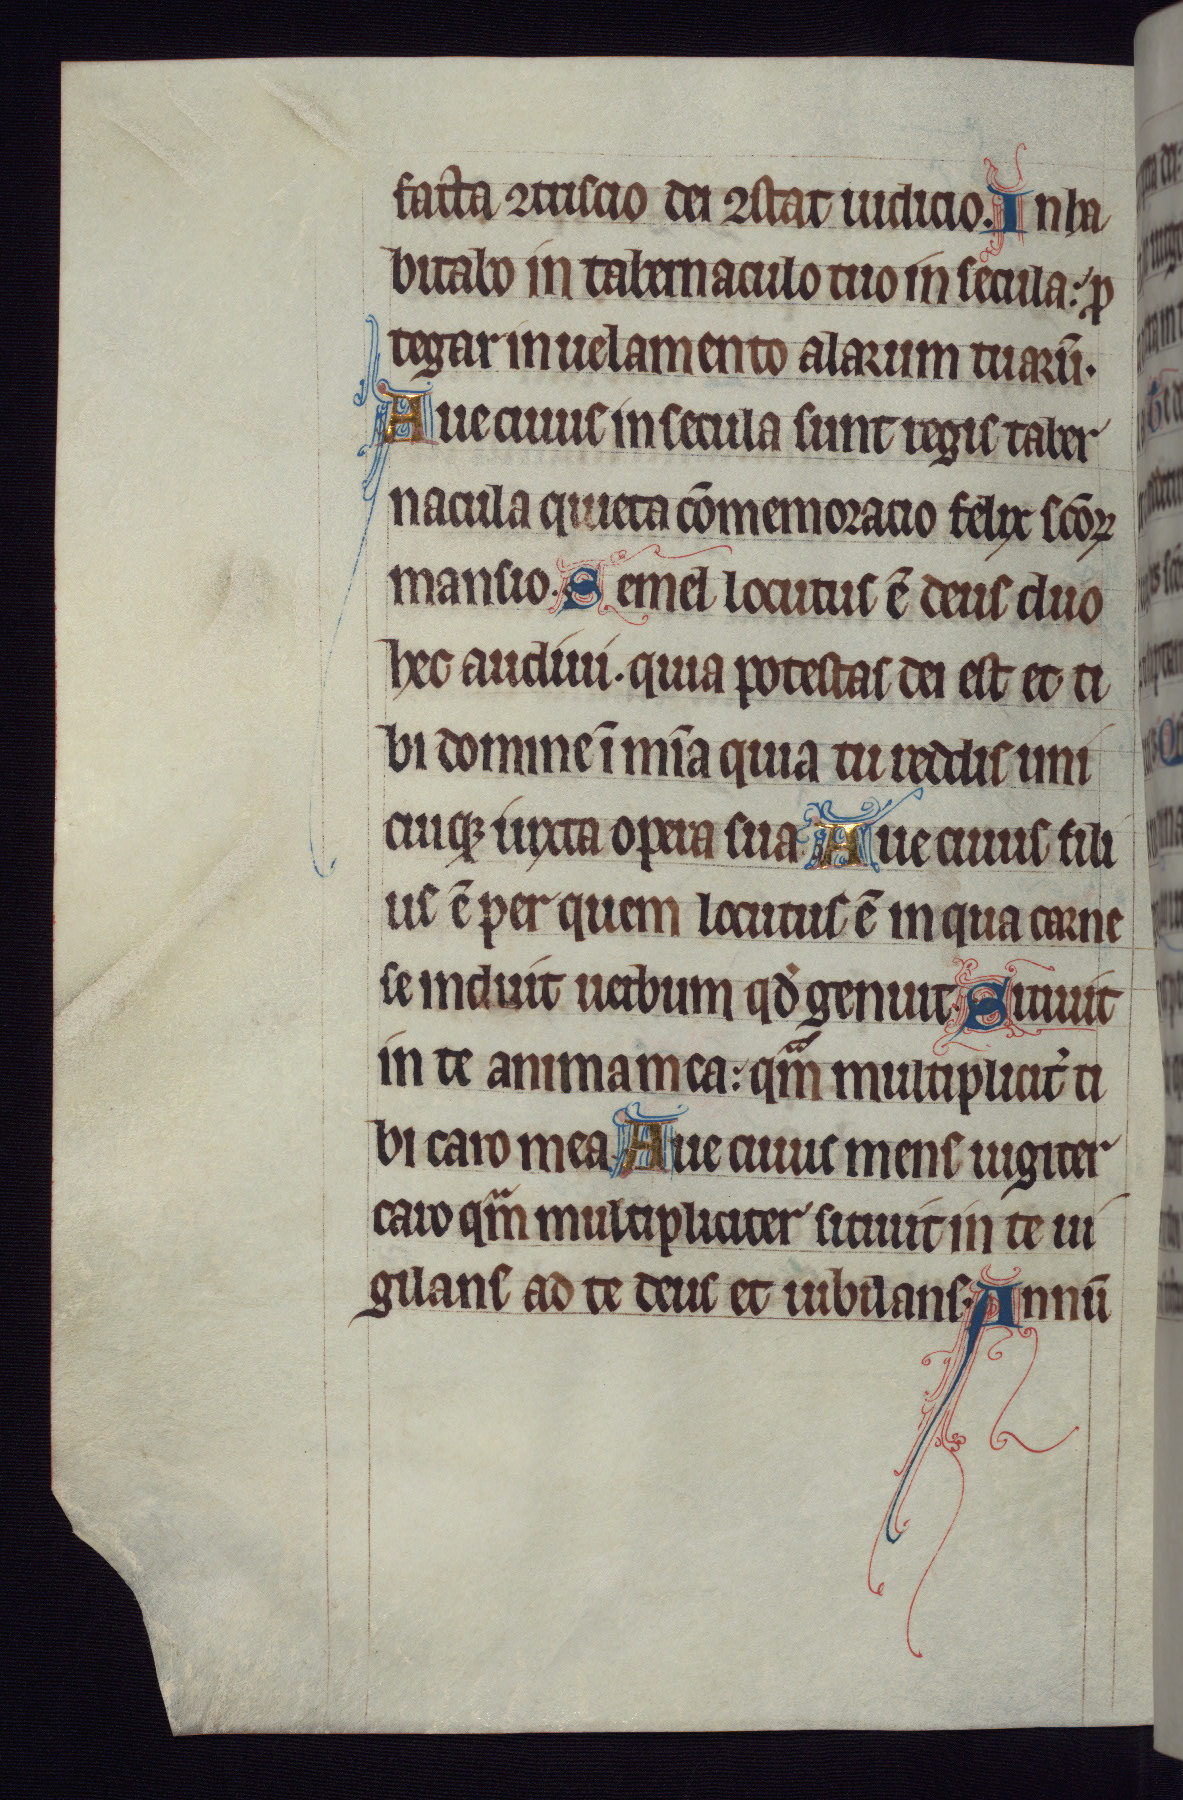 facta ꝯtriscio dei ꝯstat iudicio. Inha
bitabo in tabernaculo tuo in secula: ꝓ
tegar in uelamento alarum tuarū.
Aue cuius in secula sunt regis taber
nacula quieta cōmemoracio felix scōꝝ
mansio. Semel locutus ē deus duo
hec audiui. quia potestas dei est et ti
bi domine ī mīa quia tu reddis uni
cuiqꝫ iuxta opera sua. Aue cuius fili
us ē per quem locutus ē in qua carne
se induit uerbum qd̄ genuit. Sitiuit
in te anima mea: qm̄ multiplicit̾ ti
bi caro mea. Aue cuius mens iugiter
caro qm̄ multipliciter sitiuit in te ui
gilans ad te deus et iubilans. Annū